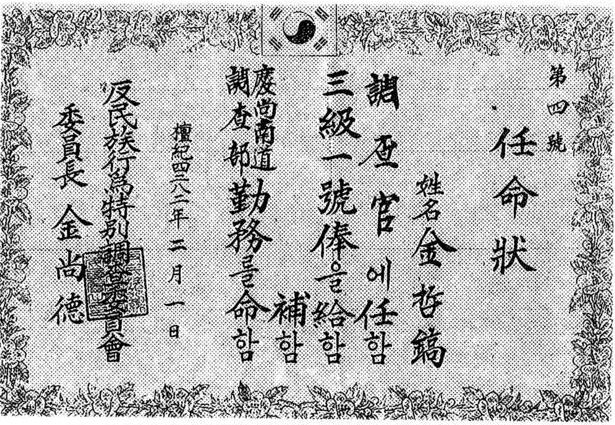 第四號
任命狀
姓名 金哲鎬
調査官에任함
三級一號俸을給함
補함
慶尚南道
調查部勤務를命함
檀紀四二八二年二月一日
反民族行爲特別調查委員會
委員長 金尚德